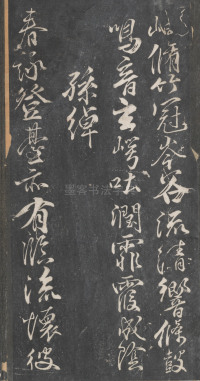 岫脩竹冠岑谷流清響條鼓
鳴音玄崿吐潤霏霞陰
孫綽
春詠登臺亦有臨流懷彼